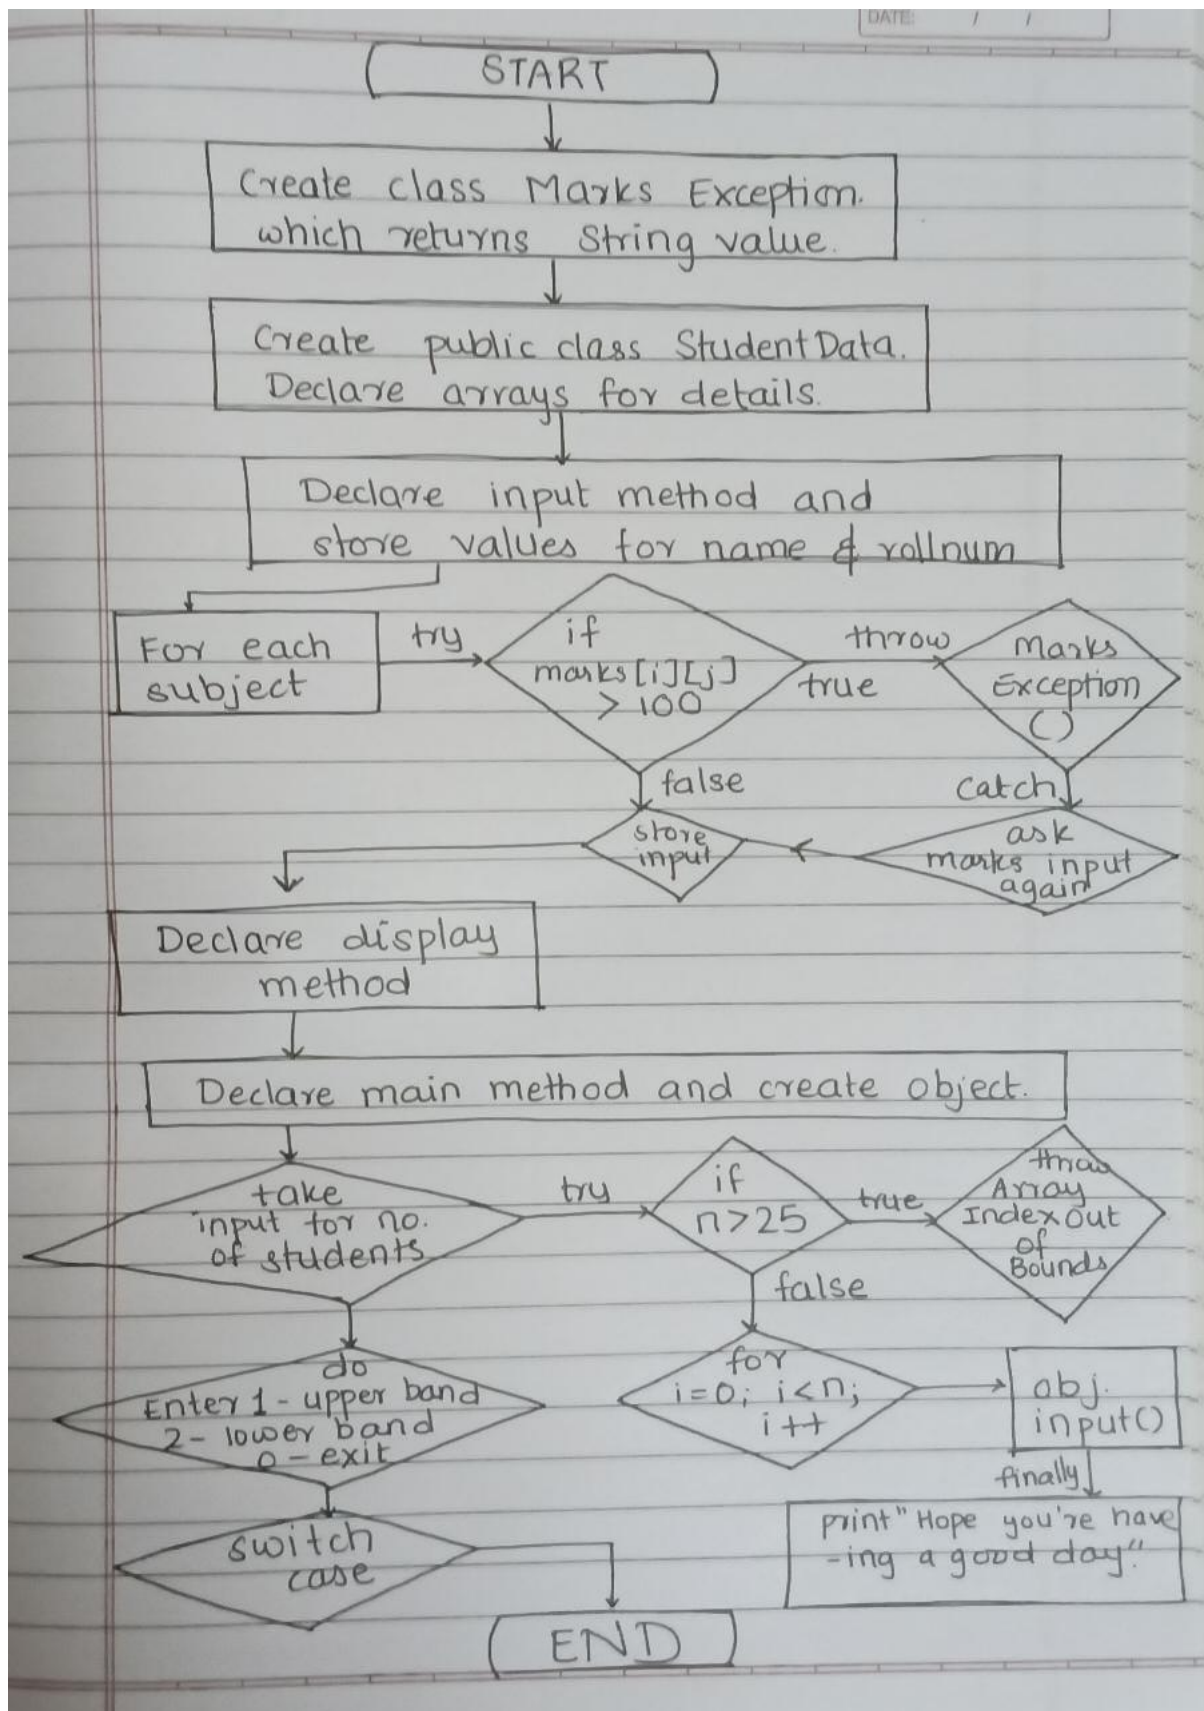 DATE: / /
START
Create class Marks Exception.
which returns String value.
Create public class StudentData.
Declare arrays for details.
Declare input method and
store values for name & rollnum
For each
subject
try
if
marks[i][j]
> 100
throw
true
Marks
Exception
()
false
catch
store
input
ask
marks input
again
Declare display
method
Declare main method and create object.
take
input for no.
of students
try
if
n>25
true
throw
Array
IndexOut
of
Bounds
false
do
Enter 1 - upper band
2 - lower band
0 - exit
for
i=0; i<n;
i++
obj.
input()
finally
switch
case
print "Hope you're have
-ing a good day"
END